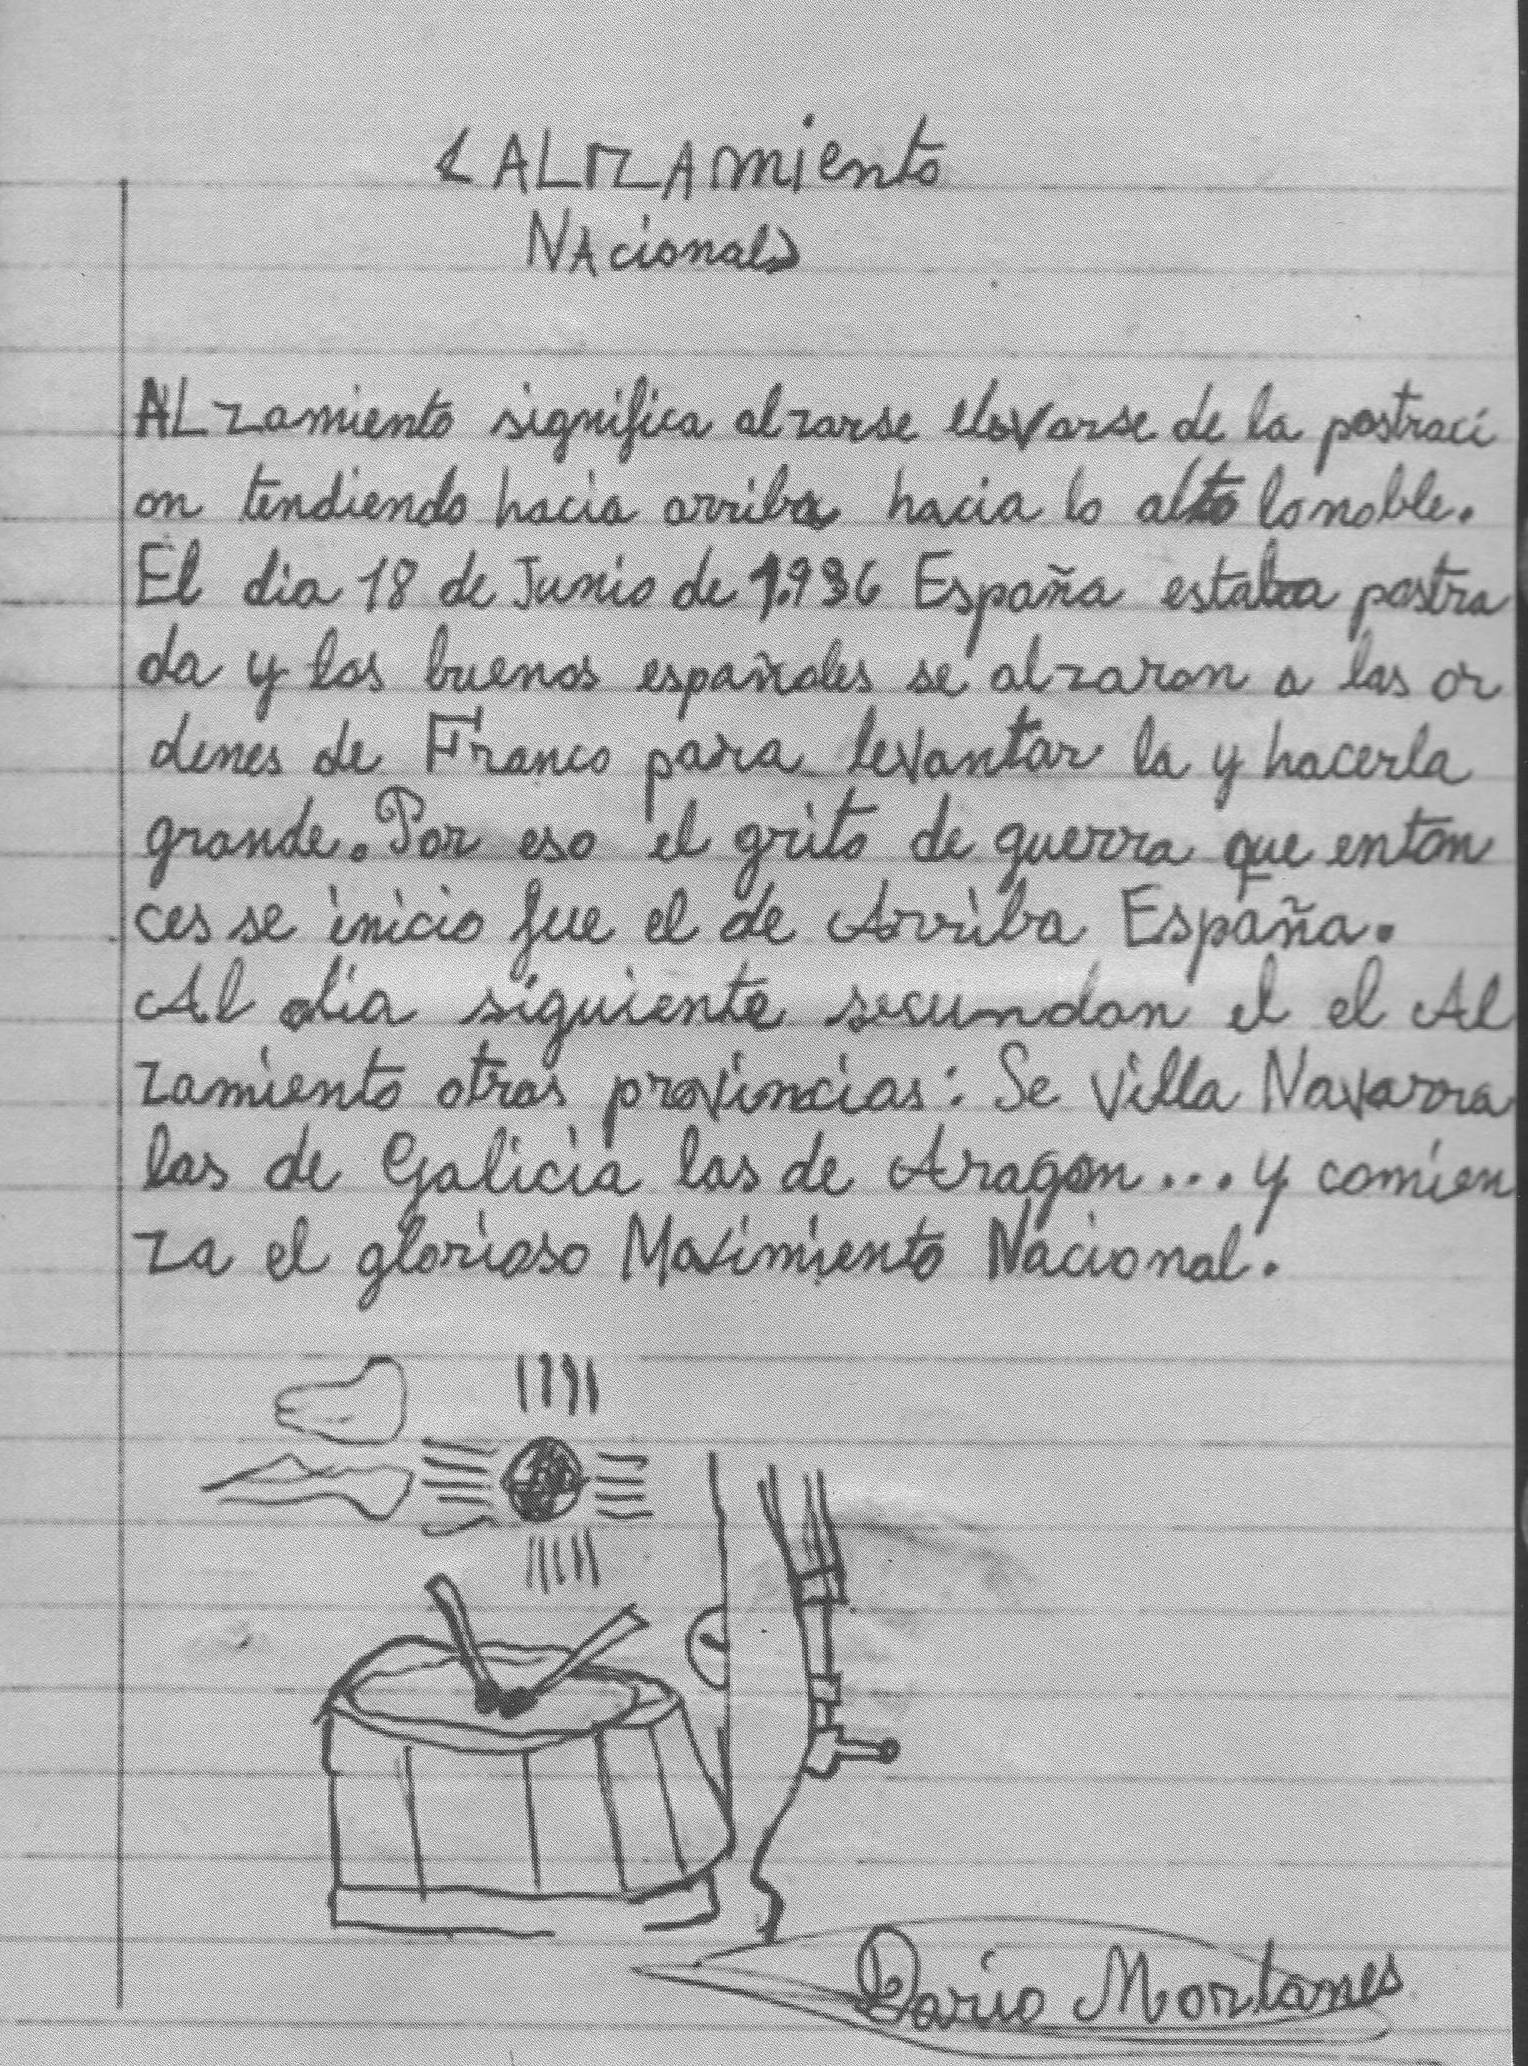 <ALZAmiento
NAcional>
ALzamiento significa alzarse elevarse de la postraci
on tendiendo hacia arriba hacia lo alto lo noble.
El dia 18 de Junio de 1.936 España estaba postra
da y los buenos españoles se alzaron a las or
denes de Franco para levantar la y hacerla
grande. Por eso el grito de guerra que enton
ces se inicio fue el de Arriba España.
Al dia siguiente secundan el el Al
zamiento otras provincias: Se villa Navarra
las de Galicia las de Aragon... y comien
za el glorioso Movimiento Nacional.
Dario Montanes